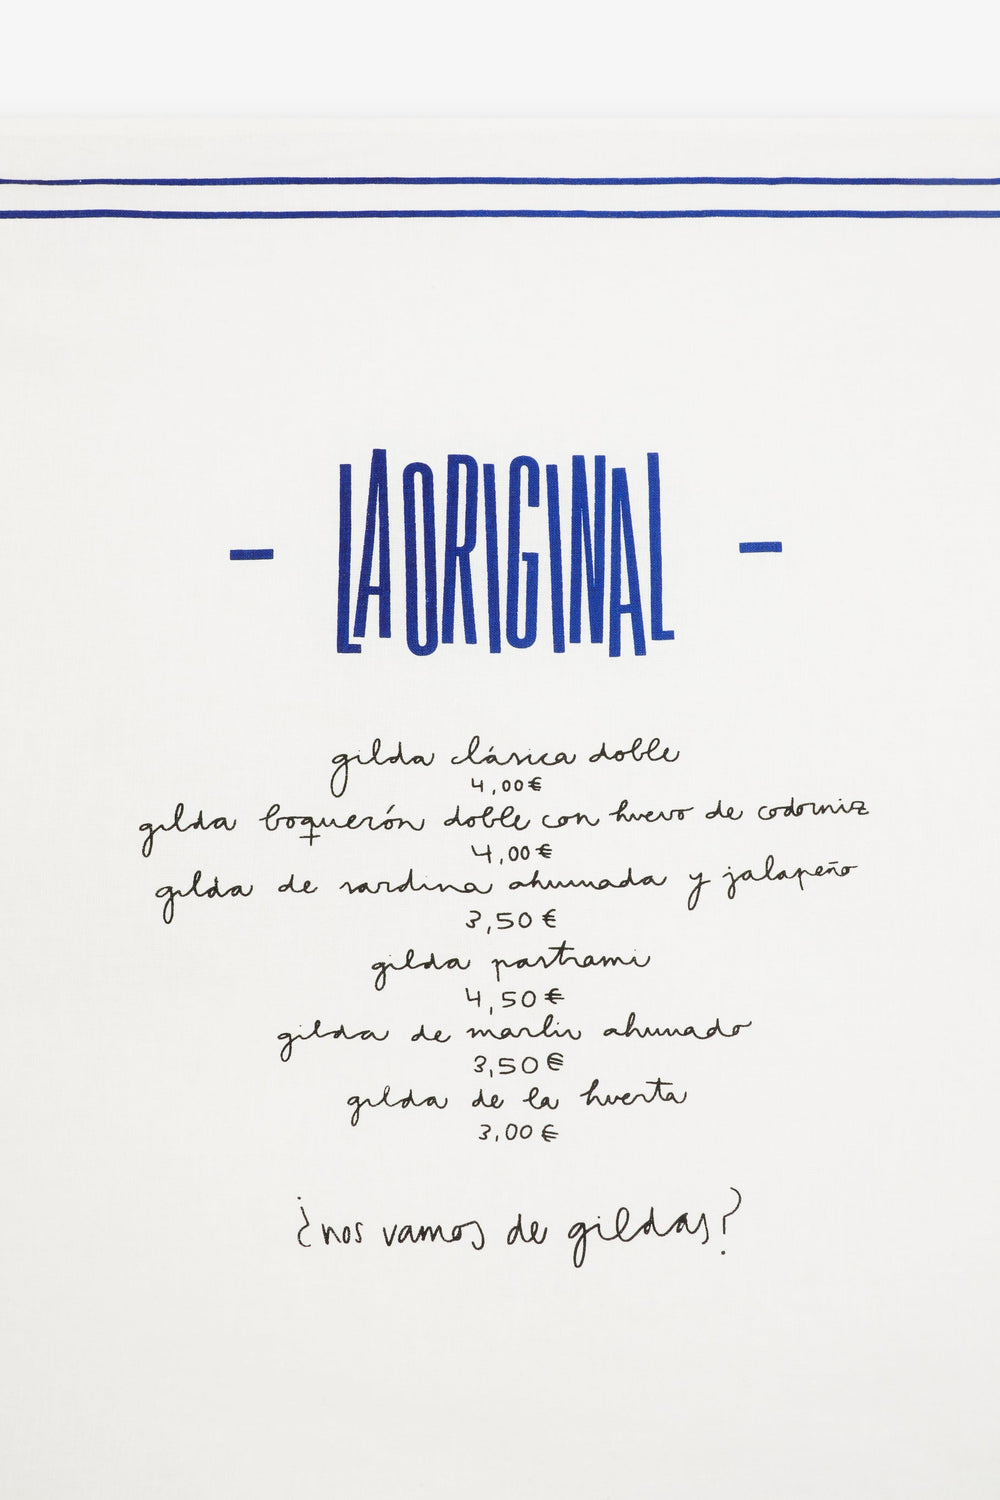 - LA ORIGINAL -
gilda clásica doble
4,00€
gilda boquerón doble con huevo de codorniz
4,00€
gilda de sardina ahumada y jalapeño
3,50€
gilda pastrami
4,50€
gilda de marlin ahumado
3,50€
gilda de la huerta
3,00€
¿nos vamos de gildas?